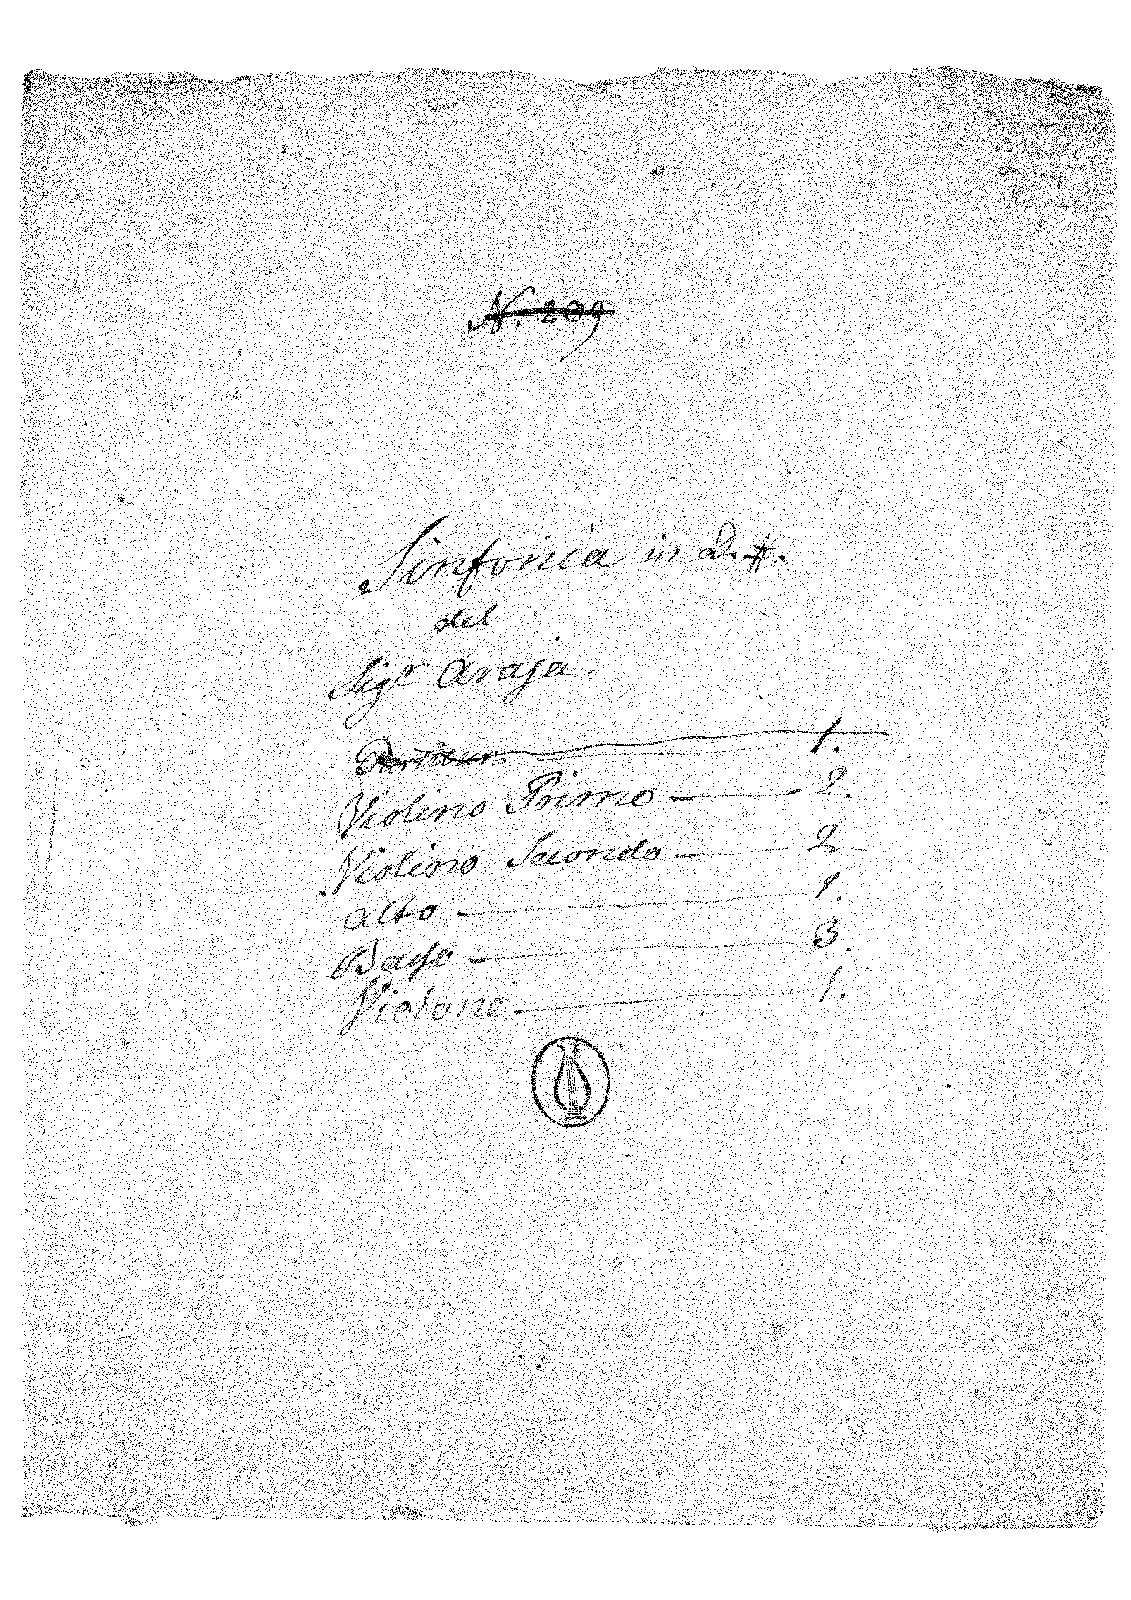 N. 209
Sinfonia in D.#.
del
Sigr Araja.
Partitur 1.
Violino Primo — 2.
Violino Secondo — 2
Alto — 1.
Basso — 3.
Violone — 1.